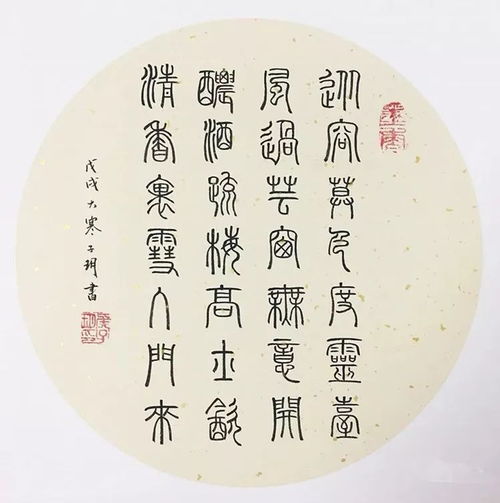 容莫色度靈臺
風過芸窗無意開
醲酒疏梅高士飲
清香裹雪入門來
戊戌大寒子玥書